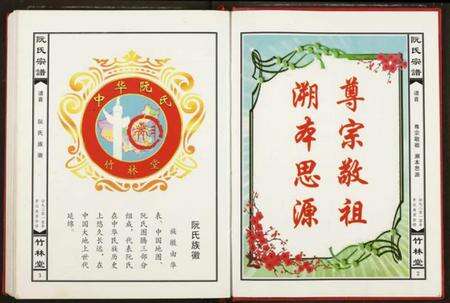 阮氏宗譜
尊宗敬祖
溯本思源
竹林堂
2
阮氏宗譜
阮氏族徽
中华阮氏
竹林堂
阮氏族徽
族徽由华
表、中国地图、
阮氏图腾三部分
组成，代表阮氏
在中华民族历史
上悠久长远，在
中国大地上世代
延绵。
竹林堂
3